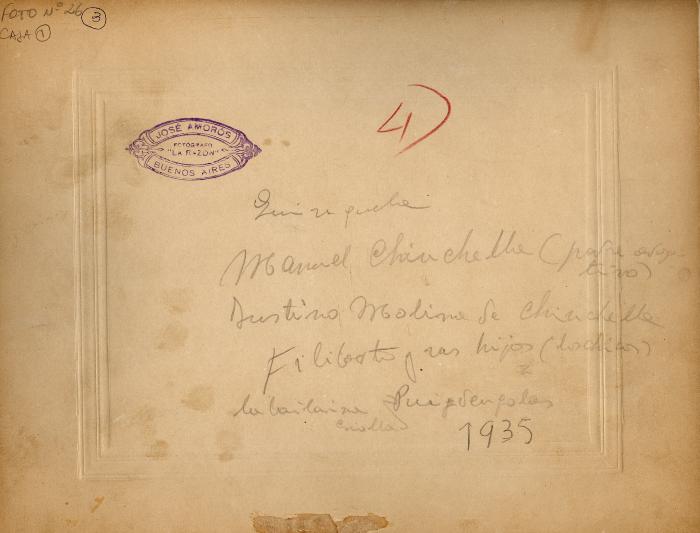 FOTO Nº 26 3
CAJA 1
4)
JOSÉ AMORÓS
FOTÓGRAFO
"LA RAZON"
BUENOS AIRES
Quinquela
Manuel Chinchella (padre adop-
tivo)
Justina Molina de Chinchella
Filiberto y sus hijos (los chicos)
la bailarina Puigdengolas
Criolla
1935